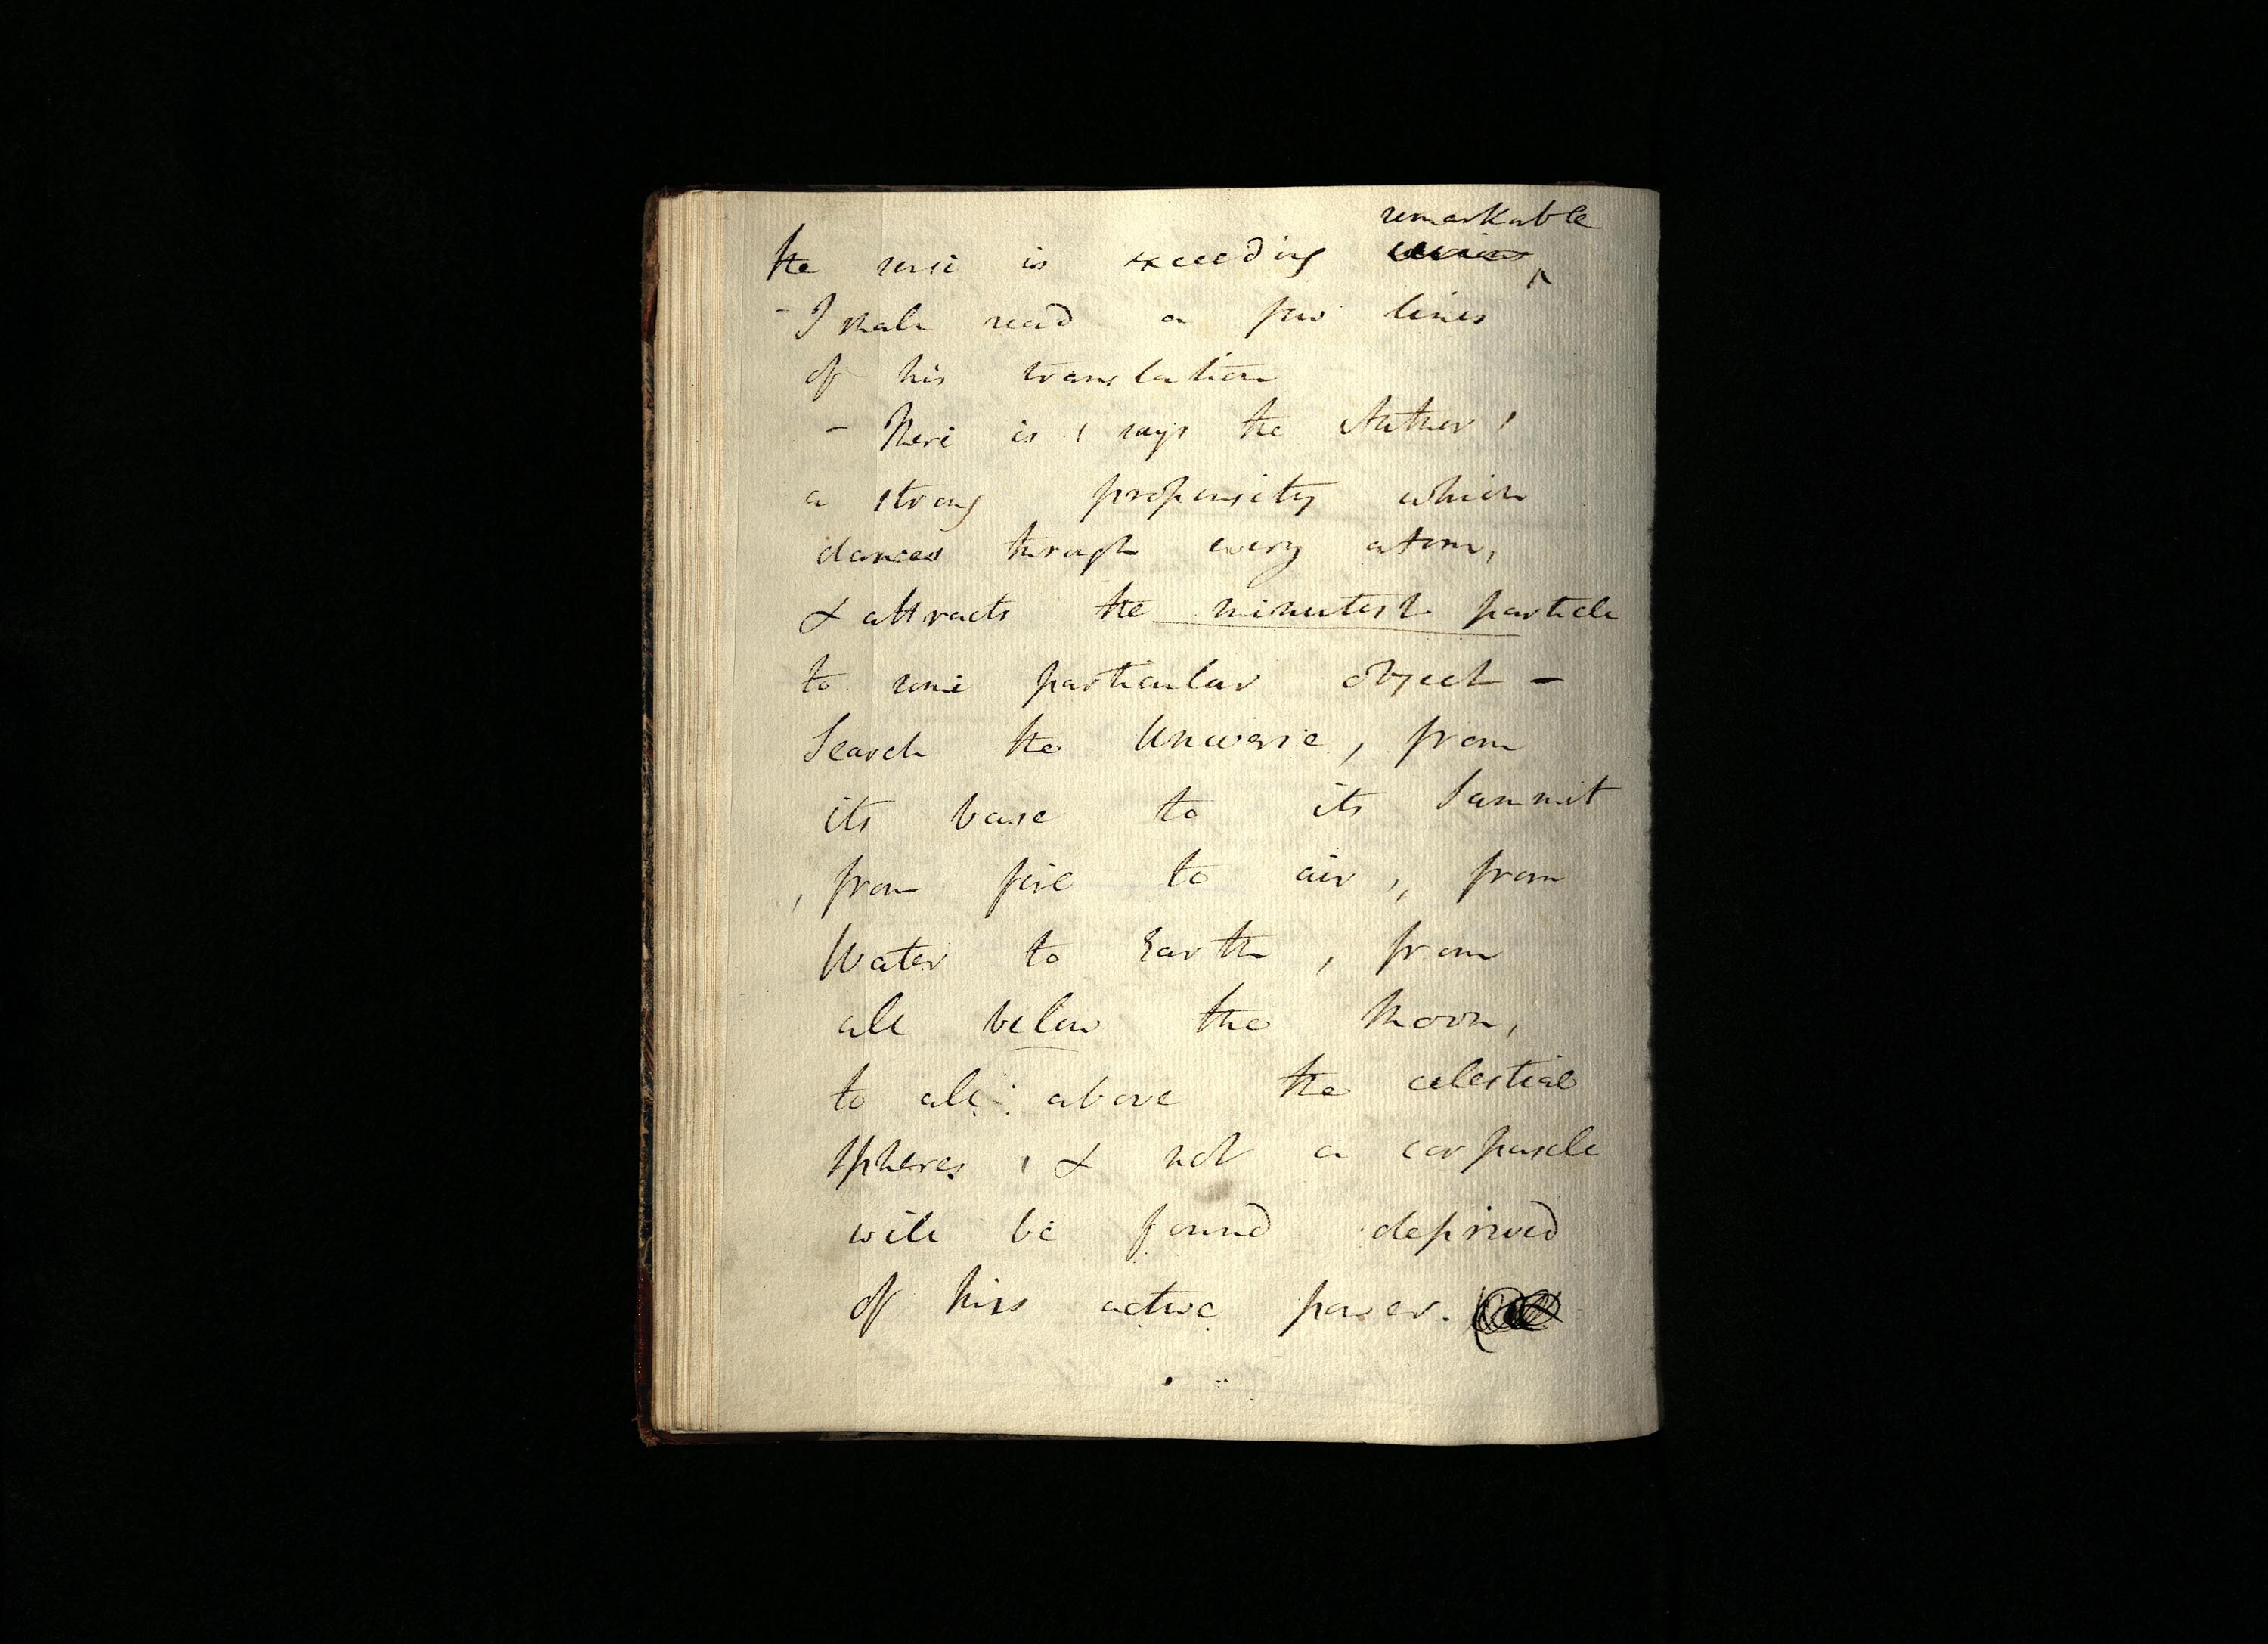 remarkable
the sense is exceeding curious
- I shall read a few lines
of his translation
- There is, says the Author,
a strong propensity which
dances through every atom,
& attracts the minutest particle
to some particular object -
Search the Universe, from
its base to its Summit
, from fire to air, from
Water to Earth, from
all below the Moon,
to all above the celestial
spheres, & not a corpuscle
will be found deprived
of this active power.